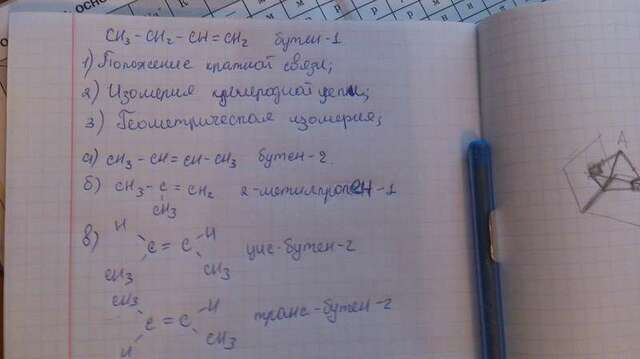 CH₃ - CH₂ - CH = CH₂ бутен-1
1) Положение кратной связи;
2) Изомерия углеродной цепи;
3) Геометрическая изомерия;
а) CH₃ - CH = CH - CH₃ бутен-2
б) CH₃ - C = CH₂ 2-метилпропен-1
CH₃
в) H H
C = C цис-бутен-2
CH₃ CH₃
CH₃ H
C = C транс-бутен-2
H CH₃
A